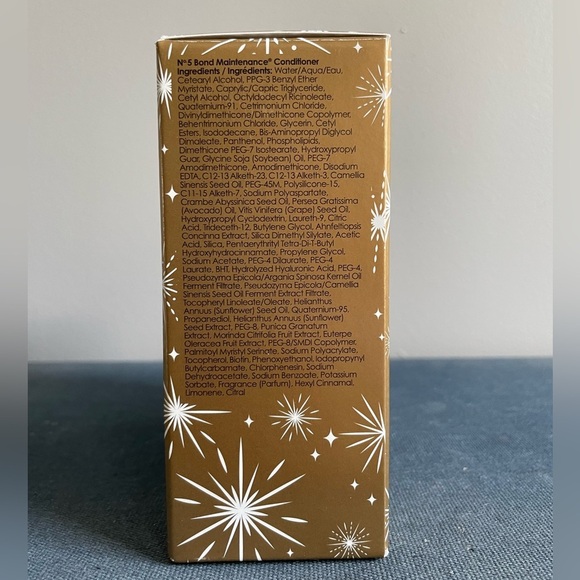 Nº5 Bond Maintenance® Conditioner
Ingredients / Ingrédients: Water/Aqua/Eau,
Cetearyl Alcohol, PPG-3 Benzyl Ether
Myristate, Caprylic/Capric Triglyceride,
Cetyl Alcohol, Octyldodecyl Ricinoleate,
Quaternium-91, Cetrimonium Chloride,
Divinyldimethicone/Dimethicone Copolymer,
Behentrimonium Chloride, Glycerin, Cetyl
Esters, Isododecane, Bis-Aminopropyl Diglycol
Dimaleate, Panthenol, Phospholipids,
Dimethicone PEG-7 Isostearate, Hydroxypropyl
Guar, Glycine Soja (Soybean) Oil, PEG-7
Amodimethicone, Amodimethicone, Disodium
EDTA, C12-13 Alketh-23, C12-13 Alketh-3, Camellia
Sinensis Seed Oil, PEG-45M, Polysilicone-15,
C11-15 Alketh-7, Sodium Polyaspartate,
Crambe Abyssinica Seed Oil, Persea Gratissima
(Avocado) Oil, Vitis Vinifera (Grape) Seed Oil,
Hydroxypropyl Cyclodextrin, Laureth-9, Citric
Acid, Trideceth-12, Butylene Glycol, Ahnfeltiopsis
Concinna Extract, Silica Dimethyl Silylate, Acetic
Acid, Silica, Pentaerythrityl Tetra-Di-T-Butyl
Hydroxyhydrocinnamate, Propylene Glycol,
Sodium Acetate, PEG-4 Dilaurate, PEG-4
Laurate, BHT, Hydrolyzed Hyaluronic Acid, PEG-4,
Pseudozyma Epicola/Argania Spinosa Kernel Oil
Ferment Filtrate, Pseudozyma Epicola/Camellia
Sinensis Seed Oil Ferment Extract Filtrate,
Tocopheryl Linoleate/Oleate, Helianthus
Annuus (Sunflower) Seed Oil, Quaternium-95,
Propanediol, Helianthus Annuus (Sunflower)
Seed Extract, PEG-8, Punica Granatum
Extract, Morinda Citrifolia Fruit Extract, Euterpe
Oleracea Fruit Extract, PEG-8/SMDI Copolymer,
Palmitoyl Myristyl Serinate, Sodium Polyacrylate,
Tocopherol, Biotin, Phenoxyethanol, Iodopropynyl
Butylcarbamate, Chlorphenesin, Sodium
Dehydroacetate, Sodium Benzoate, Potassium
Sorbate, Fragrance (Parfum), Hexyl Cinnamal,
Limonene, Citral